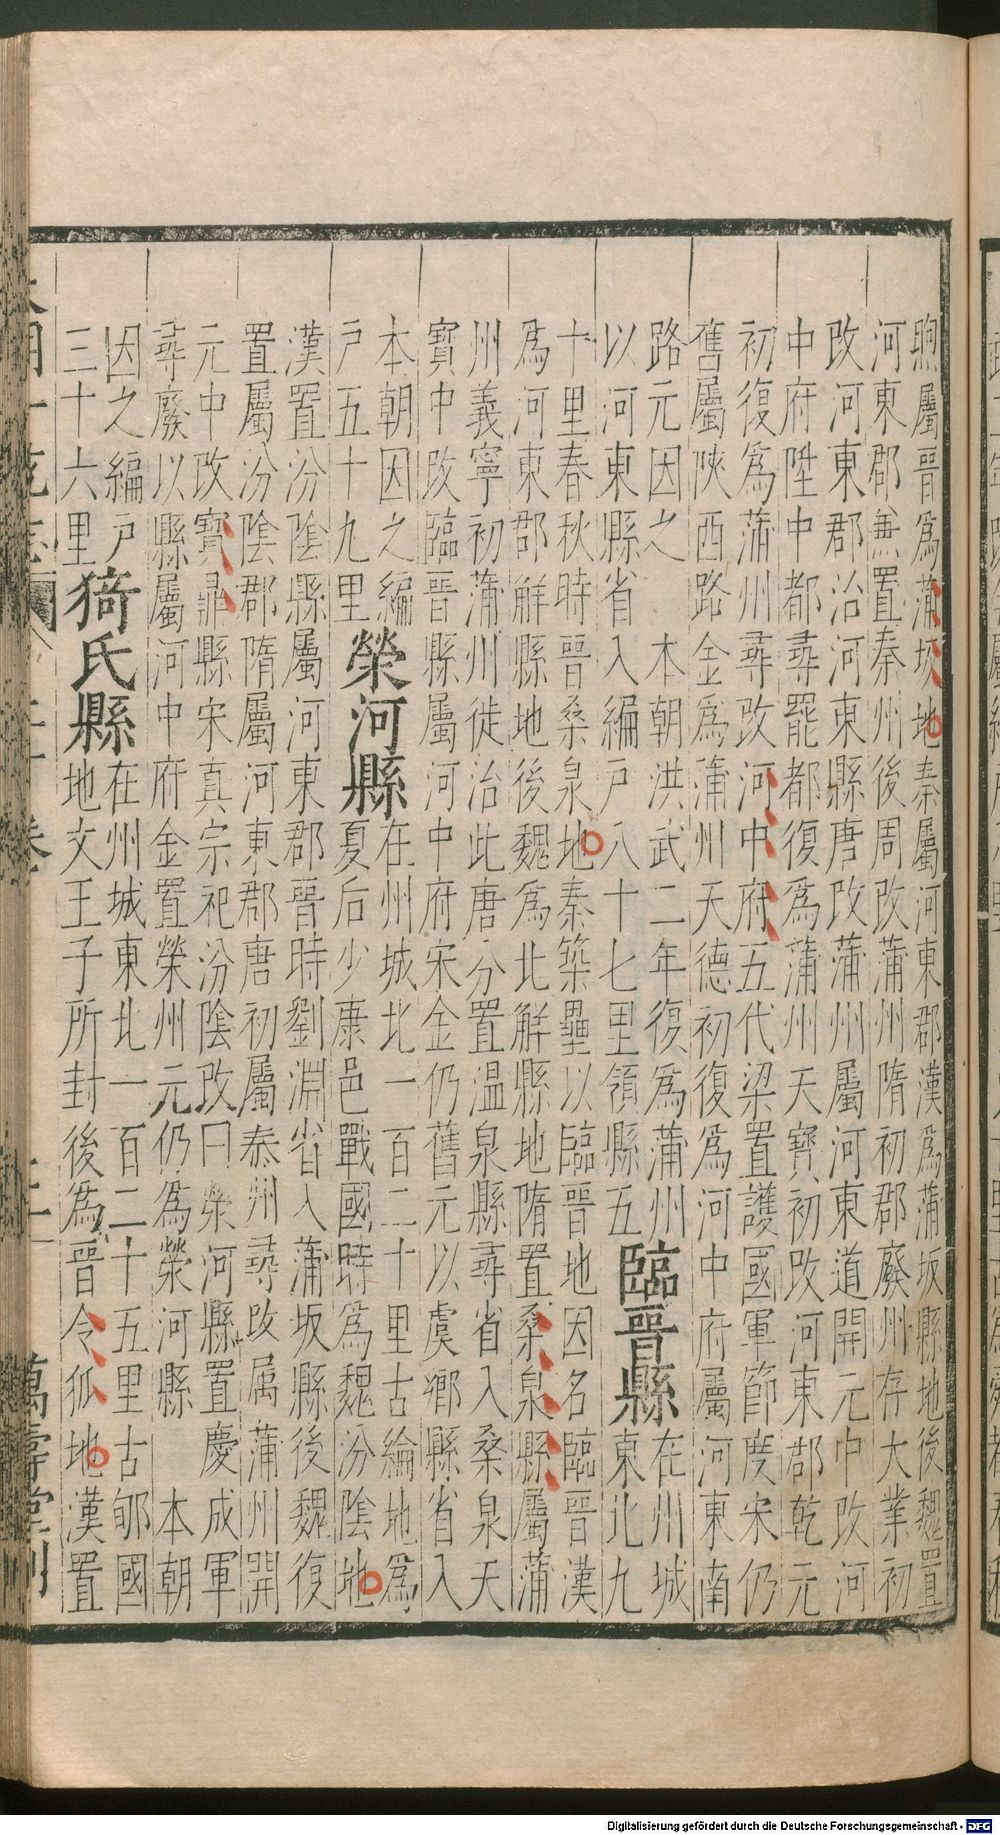 晌屬晉爲蒲坂地秦屬河東郡漢爲蒲坂縣地後魏置
河東郡兼置秦州後周改蒲州隋初郡廢州存大業初
改河東郡治河東縣唐改蒲州屬河東道開元中改河
中府陞中都尋罷都復爲蒲州天寶初改河東郡乾元
初復爲蒲州尋改河中府五代梁置護國軍節度宋仍
舊屬陝西路金爲蒲州天德初復爲河中府屬河東南
路元因之 本朝洪武二年復爲蒲州
以河東縣省入編戶八十七里領縣五
臨晉縣
在州城
東北九
十里春秋時晉桑泉地秦築壘以臨晉地因名臨晉漢
爲河東郡解縣地後魏爲北解縣地隋置桑泉縣屬蒲
州義寧初蒲州徙治此唐分置温泉縣尋省入桑泉天
寶中改臨晉縣屬河中府宋金仍舊元以虞鄉縣省入
本朝因之編
戶五十九里
榮河縣
在州城北一百二十里古綸地爲
夏后少康邑戰國時爲魏汾陰地
漢置汾陰縣屬河東郡晉時劉淵省入蒲坂縣後魏復
置屬汾陰郡隋屬河東郡唐初屬泰州尋改属蒲州開
元中改寶鼎縣宋真宗祀汾陰改曰榮河縣置慶成軍
尋廢以縣屬河中府金置榮州元仍爲榮河縣 本朝
因之編戶
三十六里
猗氏縣
在州城東北一百二十五里古郇國
地文王子所封後爲晉令狐地漢置
萬壽堂刊
Digitalisierung gefördert durch die Deutsche Forschungsgemeinschaft - DFG